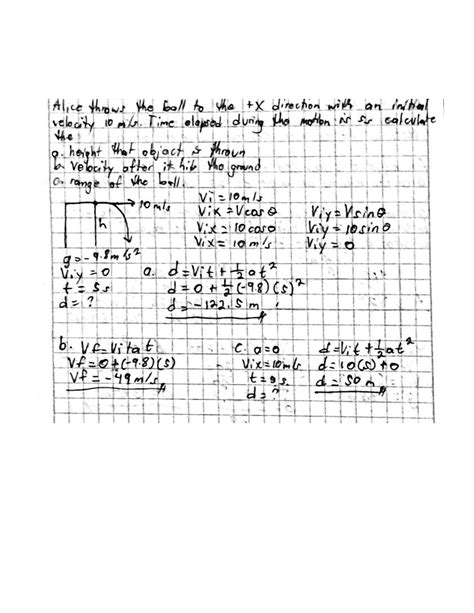 Alice throws the ball to the +x direction with an initial
velocity 10 m/s. Time elapsed during the motion is 5s calculate
the:
a. height that object is thrown
b. velocity after it hit the ground
c. range of the ball.
→10 m/s
h
g = -9.8 m/s²
Viy = 0
t = 5s
d = ?
Vi = 10 m/s
Vix = Vcosθ
Vix = 10 cos0
Vix = 10 m/s
Viy = Vsinθ
Viy = 10 sin0
Viy = 0
a. d = Vit + 1/2 at²
d = 0 + 1/2 (-9.8)(5)²
d = -122.5 m
b. Vf = Vi + at
Vf = 0 + (-9.8)(5)
Vf = -49 m/s
c. a = 0
Vix = 10 m/s
d = ?
d = Vit + 1/2 at²
d = 10(5) + 0
d = 50 m